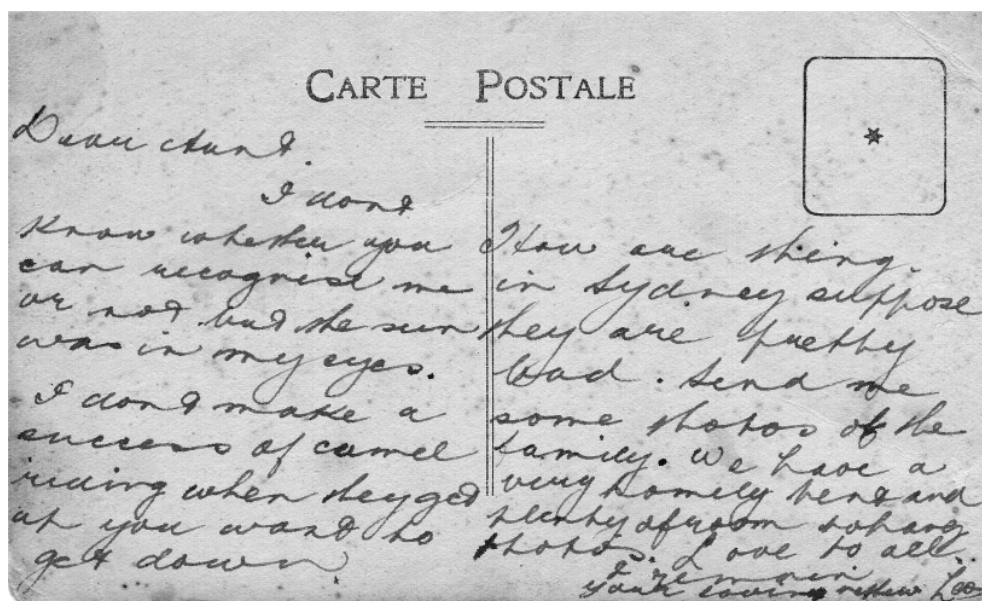 CARTE POSTALE
Dear Aunt.
I dont
know whether you
can recognise me
or not but the sun
was in my eyes.
I dont make a
success of camel
riding when they get
up you want to
get down
How are thing.
in Sydney suppose
they are pretty
bad. Send me
some photos of the
family. We have a
very homely tent and
plenty of room to hang
photos. Love to all.
I remain
your loving nephew